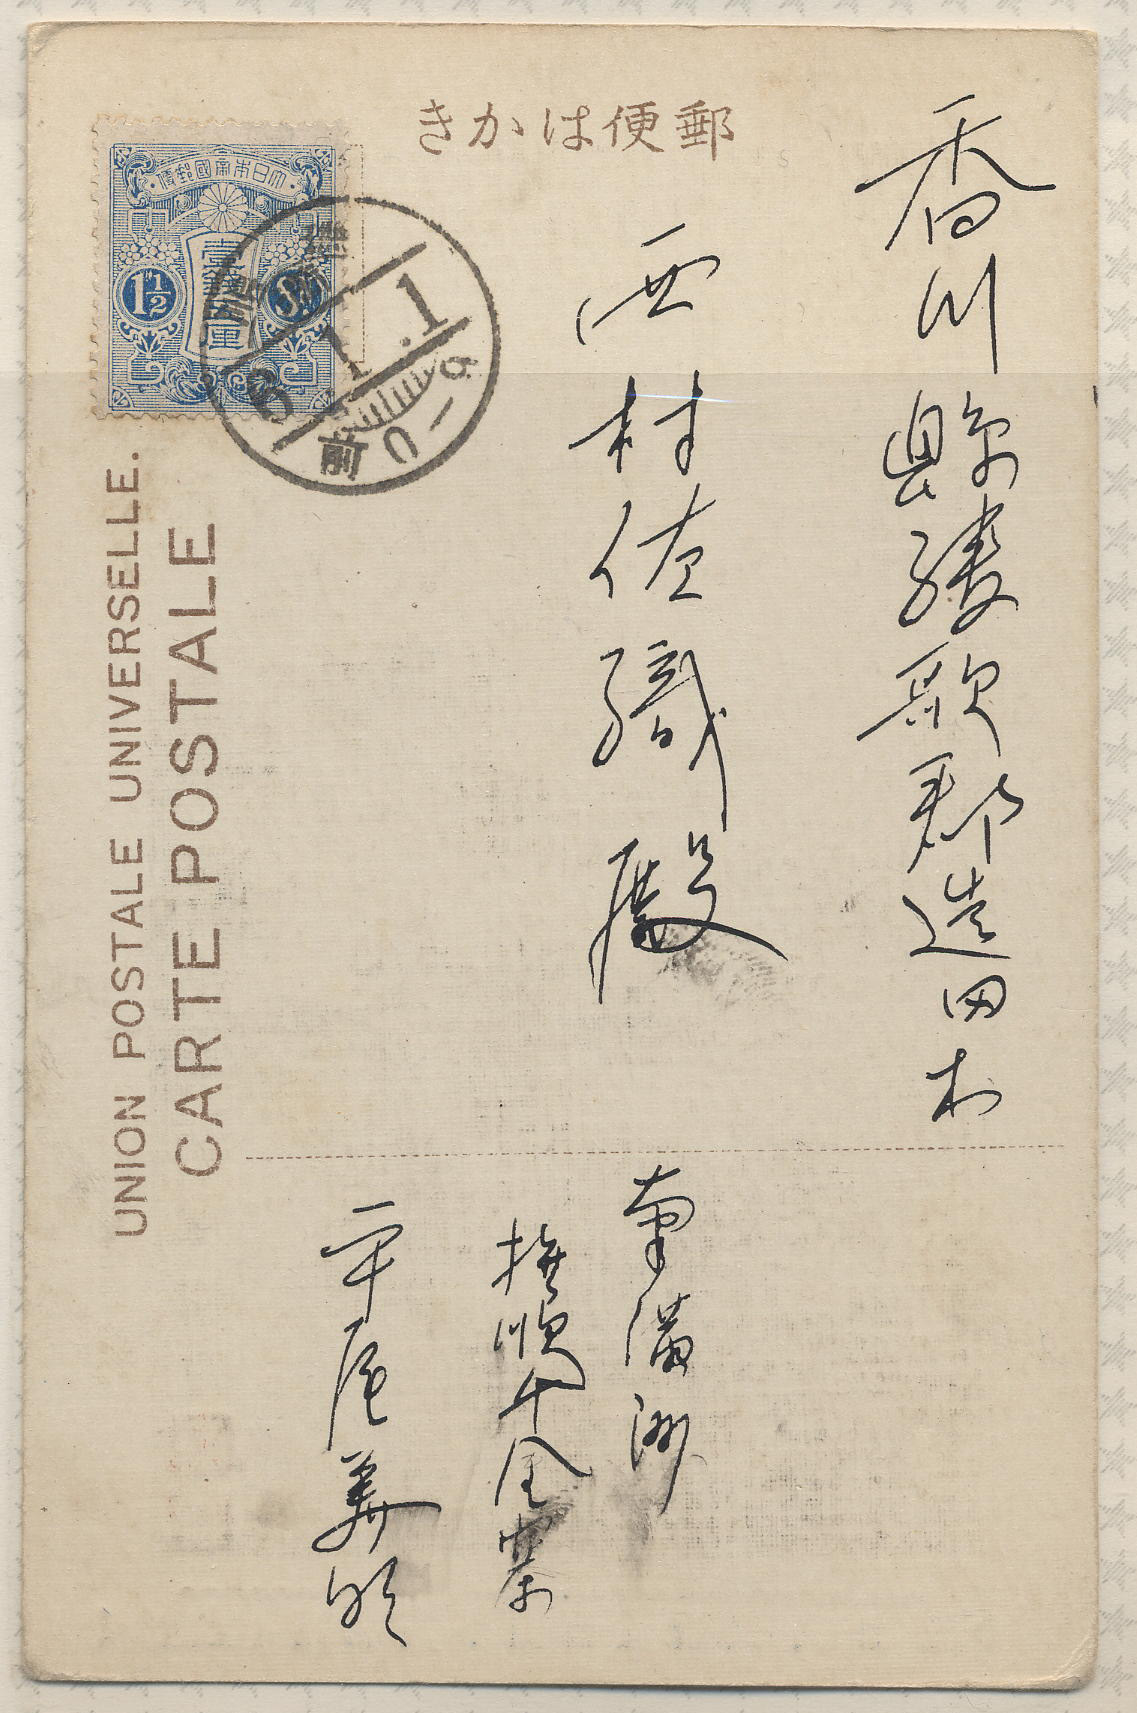 きかは便郵
大日本帝國郵便
壹錢五厘
1½
6.1.1
前0-6
UNION POSTALE UNIVERSELLE.
CARTE POSTALE
香川縣綾歌郡造田村
西村佐織殿
南満洲
撫順千金寨
平尾義